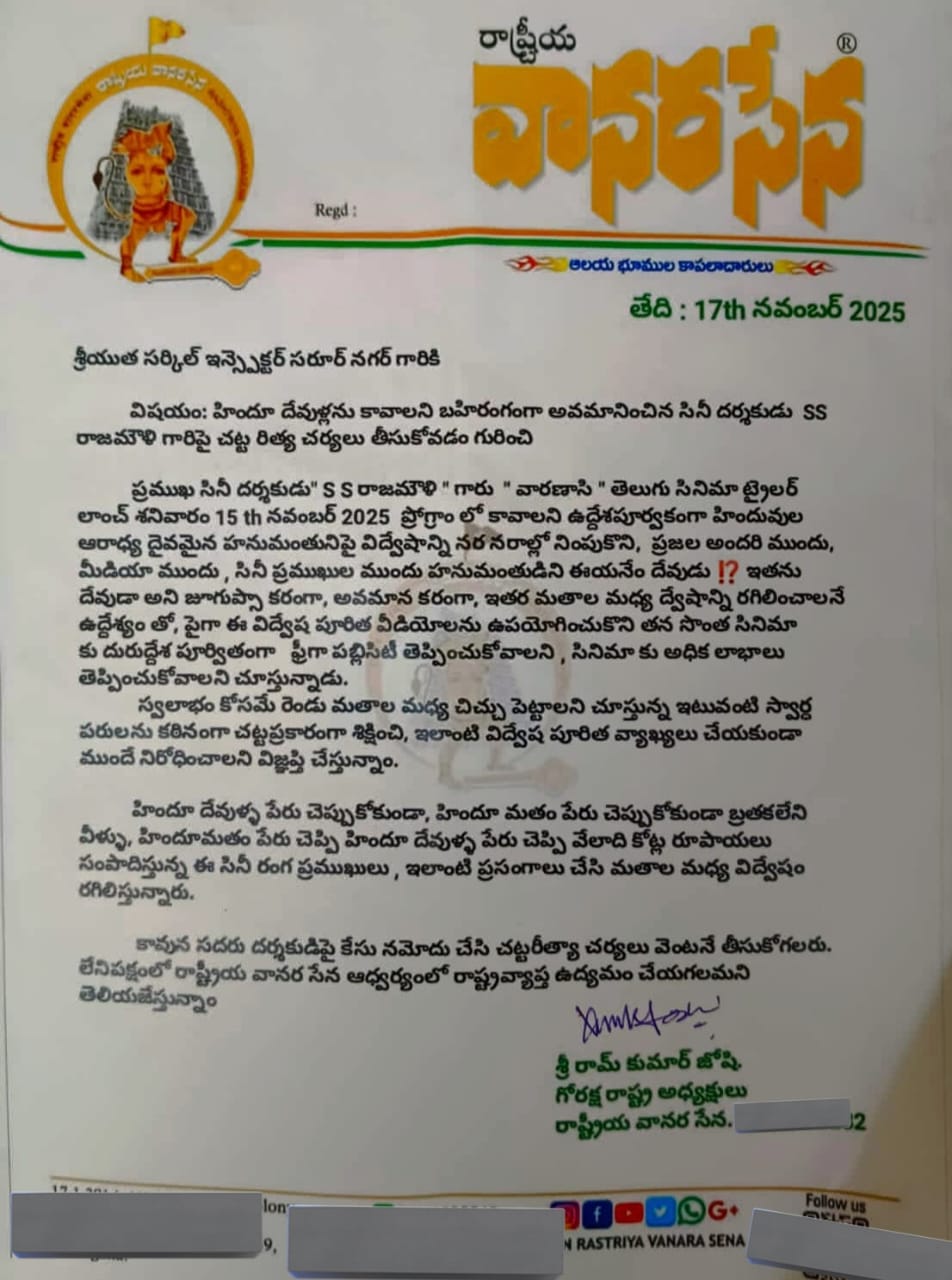 రాష్ట్రీయ
వానరసేన ®
Regd :
ఆలయ భూముల కాపలాదారులు
తేది : 17th నవంబర్ 2025
శ్రీయుత సర్కిల్ ఇన్స్పెక్టర్ సరూర్ నగర్ గారికి
విషయం: హిందూ దేవుళ్లను కావాలని బహిరంగంగా అవమానించిన సినీ దర్శకుడు SS
రాజమౌళి గారిపై చట్ట రిత్య చర్యలు తీసుకోవడం గురించి
ప్రముఖ సినీ దర్శకుడు" S S రాజమౌళి " గారు " వారణాసి " తెలుగు సినిమా ట్రైలర్
లాంచ్ శనివారం 15 th నవంబర్ 2025 ప్రోగ్రాం లో కావాలని ఉద్దేశపూర్వకంగా హిందువుల
ఆరాధ్య దైవమైన హనుమంతునిపై విద్వేషాన్ని నర నరాల్లో నింపుకొని, ప్రజల అందరి ముందు,
మీడియా ముందు , సినీ ప్రముఖుల ముందు హనుమంతుడిని ఈయనేం దేవుడు ⁉ ఇతను
దేవుడా అని జూగుప్సా కరంగా, అవమాన కరంగా, ఇతర మతాల మధ్య ద్వేషాన్ని రగిలించాలనే
ఉద్దేశ్యం తో, పైగా ఈ విద్వేష పూరిత వీడియోలను ఉపయోగించుకొని తన సొంత సినిమా
కు దురుద్దేశ పూర్వితంగా ఫ్రీగా పబ్లిసిటీ తెప్పించుకోవాలని , సినిమా కు అధిక లాభాలు
తెప్పించుకోవాలని చూస్తున్నాడు.
స్వలాభం కోసమే రెండు మతాల మధ్య చిచ్చు పెట్టాలని చూస్తున్న ఇటువంటి స్వార్థ
పరులను కఠినంగా చట్టప్రకారంగా శిక్షించి, ఇలాంటి విద్వేష పూరిత వ్యాఖ్యలు చేయకుండా
ముందే నిరోధించాలని విజ్ఞప్తి చేస్తున్నాం.
హిందూ దేవుళ్ళ పేరు చెప్పుకోకుండా, హిందూ మతం పేరు చెప్పుకోకుండా బ్రతకలేని
వీళ్ళు, హిందూమతం పేరు చెప్పి హిందూ దేవుళ్ళ పేరు చెప్పి వేలాది కోట్ల రూపాయలు
సంపాదిస్తున్న ఈ సినీ రంగ ప్రముఖులు , ఇలాంటి ప్రసంగాలు చేసి మతాల మధ్య విద్వేషం
రగిలిస్తున్నారు.
కావున సదరు దర్శకుడిపై కేసు నమోదు చేసి చట్టరీత్యా చర్యలు వెంటనే తీసుకోగలరు.
లేనిపక్షంలో రాష్ట్రీయ వానర సేన ఆధ్వర్యంలో రాష్ట్రవ్యాప్త ఉద్యమం చేయగలమని
తెలియజేస్తున్నాం
శ్రీ రామ్ కుమార్ జోషి.
గోరక్ష రాష్ట్ర అధ్యక్షులు
రాష్ట్రీయ వానర సేన.
Follow us
RASTRIYA VANARA SENA